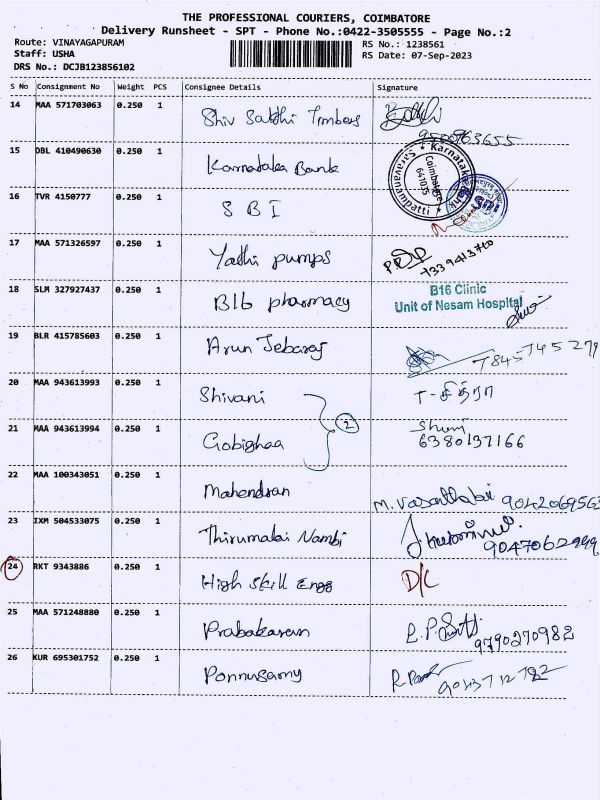 THE PROFESSIONAL COURIERS, COIMBATORE
Delivery Runsheet - SPT - Phone No.:0422-3505555 - Page No.:2
Route: VINAYAGAPURAM
Staff: USHA
DRS No.: DCJB123856102
RS No.: 1238561
RS Date: 07-Sep-2023
S No Consignment No Weight PCS Consignee Details Signature
14 MAA 571703063 0.250 1 Shiv Sakthi Timbers
9500963655
15 DBL 410490630 0.250 1 Karnataka Bank
Karnataka Bank Saravanampatti
Coimbatore
641035
16 TVR 4150777 0.250 1 S B I
SBI
17 MAA 571326597 0.250 1 Yathi pumps
7339413760
18 SLM 327927437 0.250 1 B16 pharmacy
B16 Clinic
Unit of Nesam Hospital
19 BLR 415785603 0.250 1 Arun Jebaraj
7845745279
20 MAA 943613993 0.250 1 Shivani T-சித்ரா
2
21 MAA 943613994 0.250 1 Gobighaa
6380137166
22 MAA 100343051 0.250 1 Mahendran M. Vasanthabai 9042069563
23 IXM 504533075 0.250 1 Thirumalai Nambi
24 RKT 9343886 0.250 1 High Skill Engg D/C
25 MAA 571248880 0.250 1 Prabakaran
9790270982
26 KUR 695301752 0.250 1 Ponnusamy